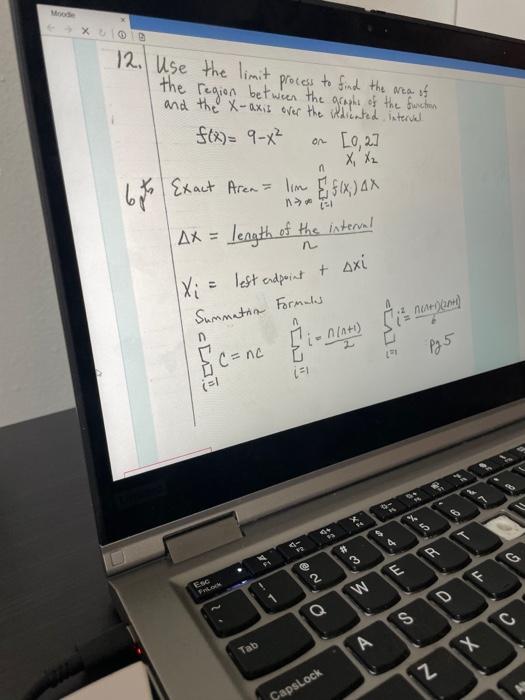 Moodle
12. Use the limit process to find the area of
the region between the graphs of the function
and the x-axis over the indicated interval
f(x) = 9-x² on [0,2]
X₁ X₂
Exact Area = lim n→∞ n Σ i=1 f(xᵢ) ΔX
ΔX = length of the interval / n
Xᵢ = left endpoint + ΔXi
Summation Formulas
n Σ i=1 C = nc n Σ i=1 i = n(n+1)/2 n Σ i=1 i² = n(n+1)(2n+1)/6
Pg 5
Lenovo
Esc FnLock F1 F2 F3 F4 F5 F6 F7 F8
~ ! 1 @ 2 # 3 $ 4 % 5 6 & 7 8
Tab Q W E R T
CapsLock A S D F G
Z X C